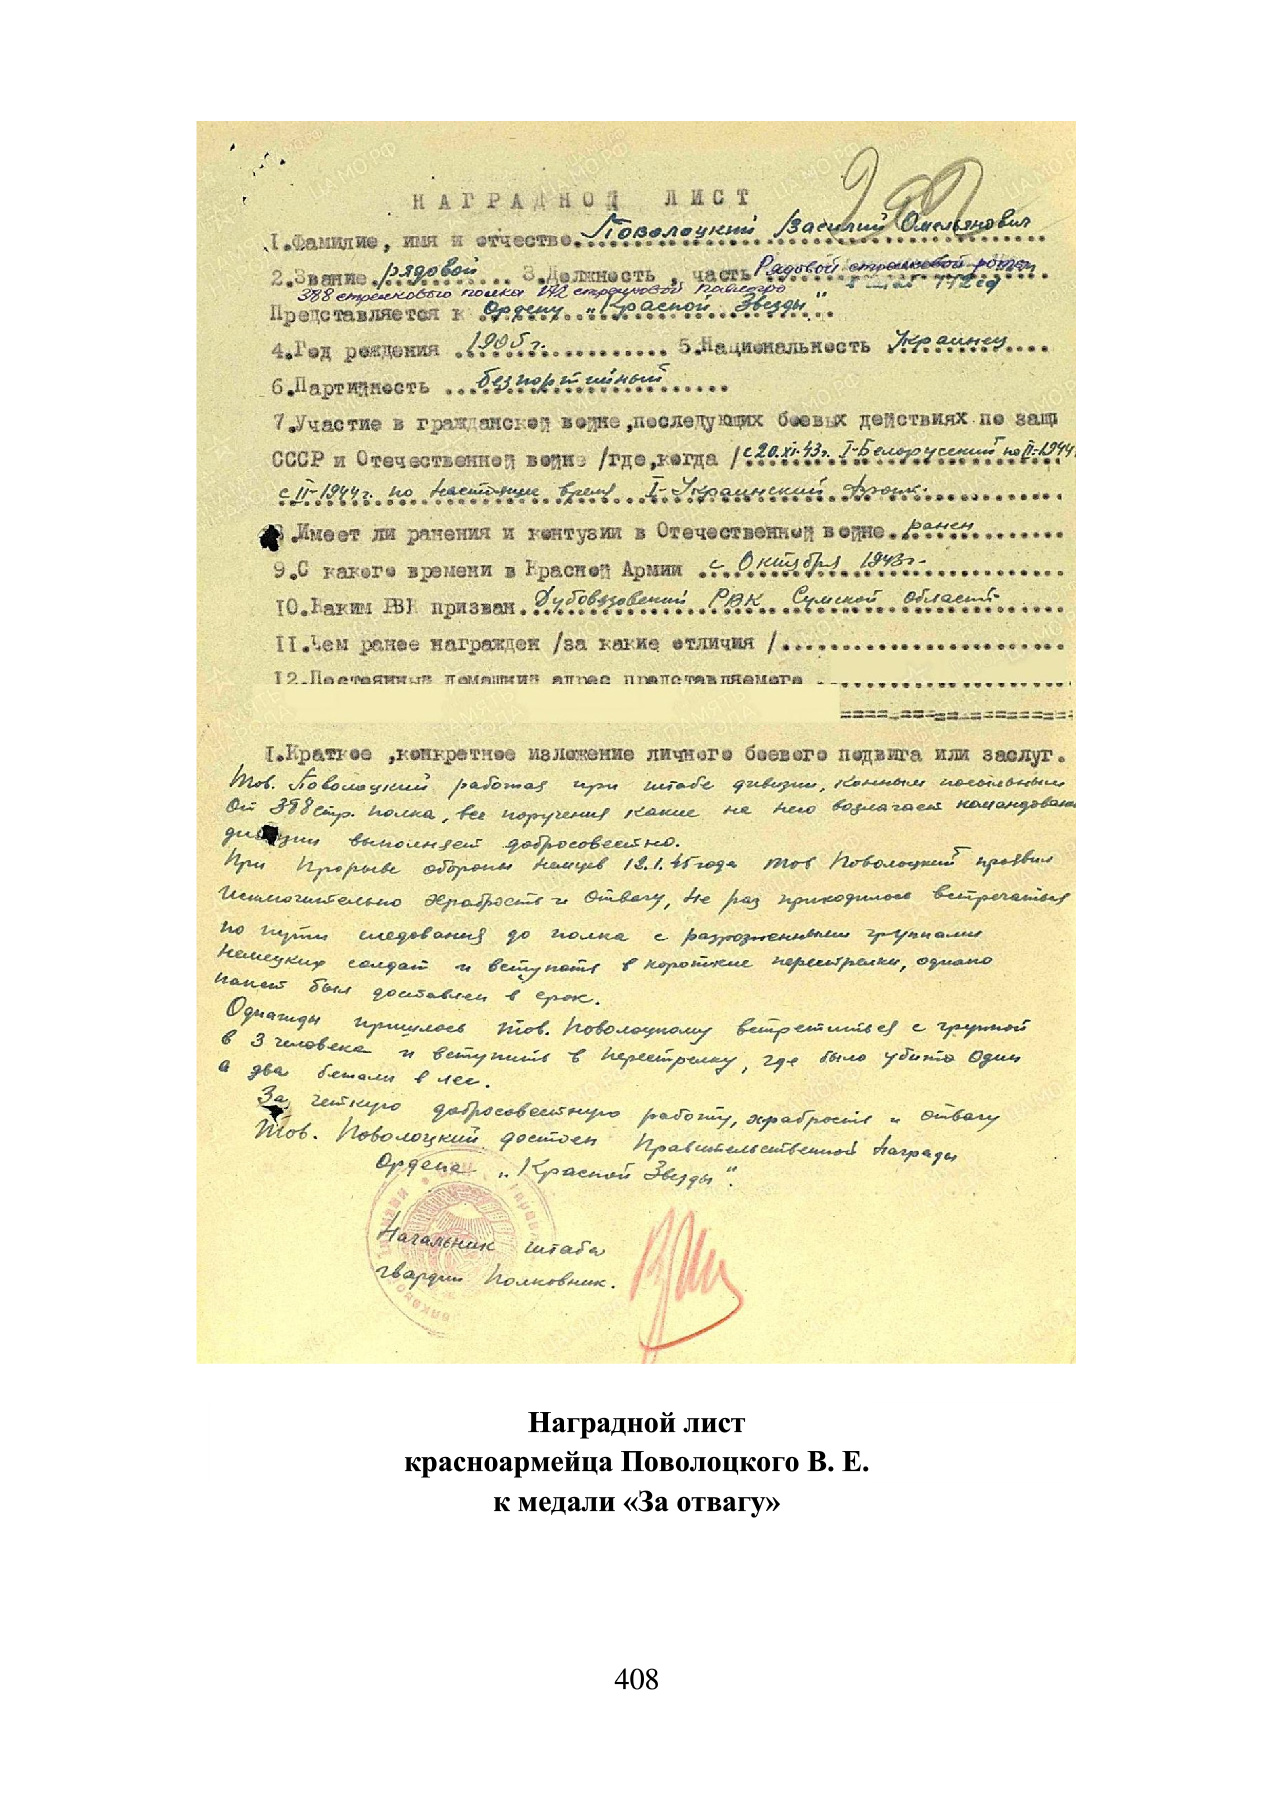 НАГРАДНОЙ ЛИСТ
1.Фамилие, имя и отчество Поволоцкий Василий Омельянович
2.Звание рядовой 3.Должность, часть Рядовой стрелковой роты
388 стрелкового полка 172 стрелковой
Представляется к Ордену „Красной Звезды"
4.Год рождения 1905 г. 5.Национальность Украинец
6.Партийность безпортийный
7.Участие в гражданской войне,последующих боевых действиях по защи
СССР и Отечественной войне /где,когда / с 20.XI.43г. I-Белорусский по II-1944
с II-1944г. по настоящие время I-Украинский Фронт.
8.Имеет ли ранения и контузии в Отечественной войне. ранен
9.С какого времени в Красной Армии с Октября 1943г.
10.Каким РВК призван. Дубовязовский РВК Сумской области
11.Чем ранее награжден /за какие отличия /
12.Постоянный домашний адрес представляемого
I.Краткое ,конкретное изложение личного боевого подвига или заслуг.
Тов. Поволоцкий работая при штабе дивизии, конным посыльным
от 388 стр. полка, все поручения какие на него возлагает командован
дивизии выполняет добросовестно.
При прорыве обороны немцев 12.1.45 года тов Поволоцкий проявил
исключительно храбрость и отвагу, не раз приходилось встречаться
по пути следования до полка с разрозненными группами
немецких солдат и вступать в короткие перестрелки, однако
пакет был доставлен в срок.
Однажды пришлось тов. Поволоцкому встретиться с группой
в 3 человека и вступить в перестрелку, где было убито один
а два бежали в лес.
За четкую добросовестную работу, храбрость и отвагу
тов. Поволоцкий достоен Правительственной Награды
Ордена „Красной Звезды".
Начальник штаба
гвардии Полковник.
Наградной лист
красноармейца Поволоцкого В. Е.
к медали «За отвагу»
408